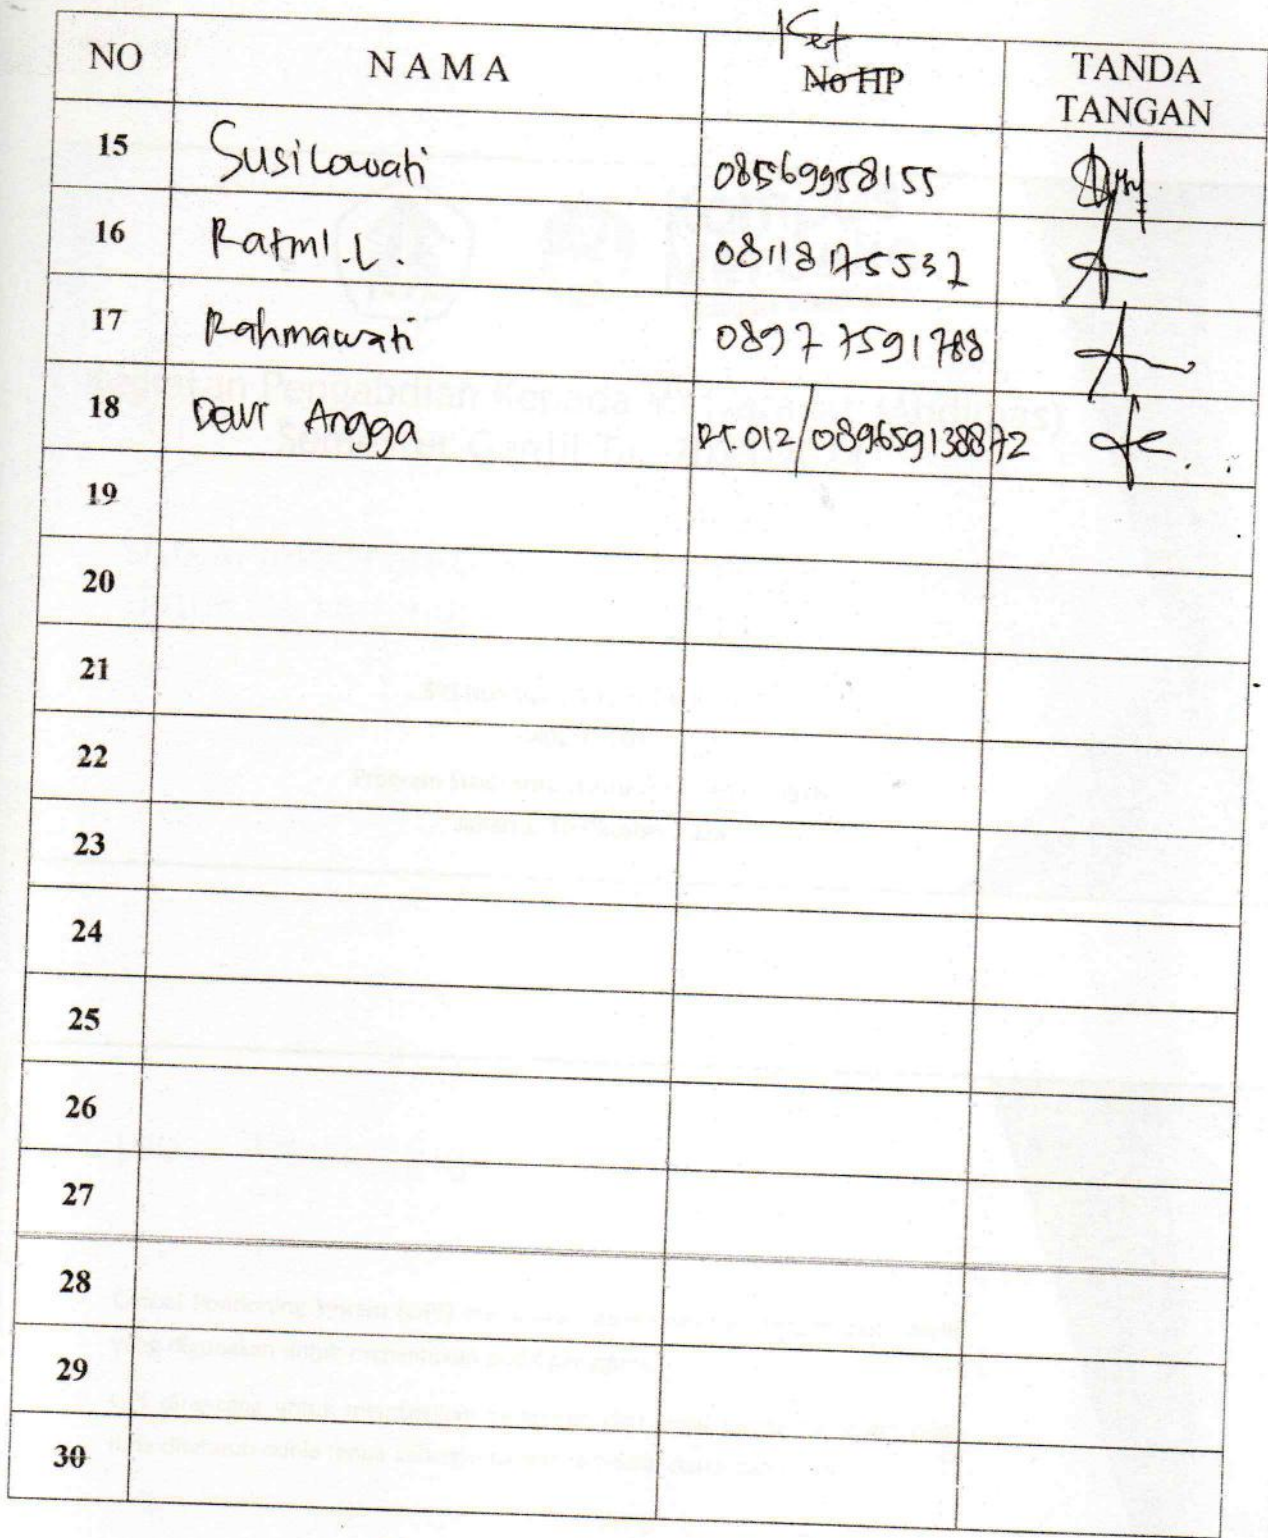 Ket
NO NAMA No HP TANDA TANGAN
15 Susilawati 08569958155
16 Ratmi.L. 08118175532
17 Rahmawati 0897 7591788
18 Dewi Angga RT.012/089659138872
19
20
21
22
23
24
25
26
27
28
29
30